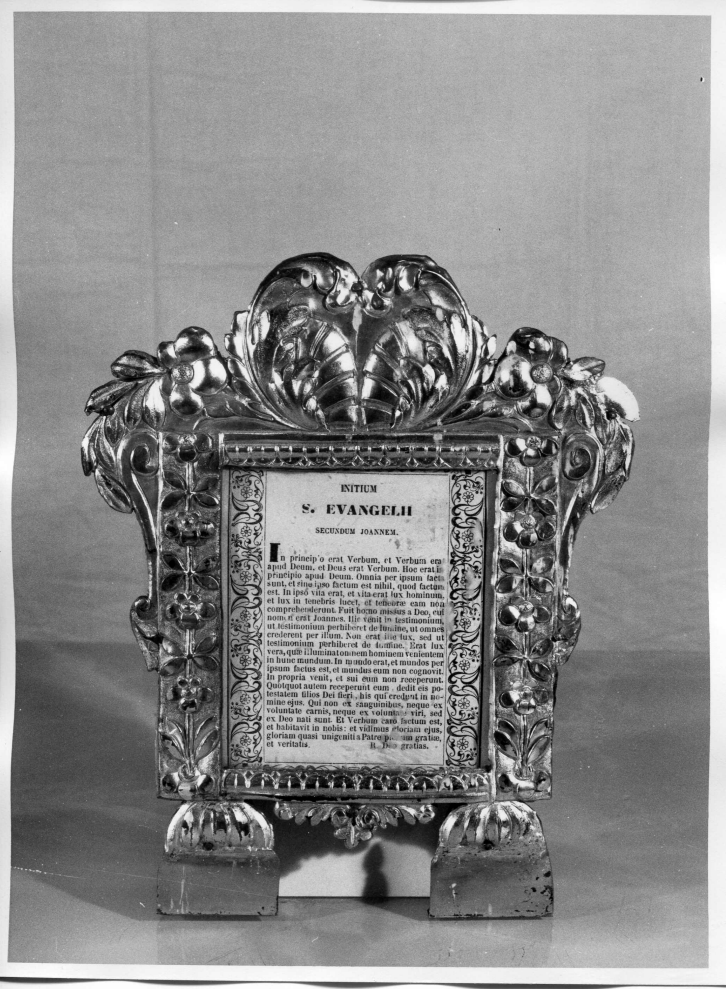 INITIUM
S. EVANGELII
SECUNDUM JOANNEM.
In principio erat Verbum, et Verbum era
apud Deum, et Deus erat Verbum. Hoc erat i
principio apud Deum. Omnia per ipsum facta
sunt, et sine ipso factum est nihil, quod factum
est. In ipso vita erat, et vita erat lux hominum,
et lux in tenebris lucet, et tenebræ eam non
comprehenderunt. Fuit homo missus a Deo, cui
nomen erat Joannes. Hic venit in testimonium,
ut testimonium perhiberet de lumine, ut omnes
crederent per illum. Non erat ille lux, sed ut
testimonium perhiberet de lumine. Erat lux
vera, quæ illuminat omnem hominem venientem
in hunc mundum. In mundo erat, et mundus per
ipsum factus est, et mundus eum non cognovit.
In propria venit, et sui eum non receperunt.
Quotquot autem receperunt eum, dedit eis po-
testatem filios Dei fieri, his qui credunt in no-
mine ejus. Qui non ex sanguinibus, neque ex
voluntate carnis, neque ex voluntate viri, sed
ex Deo nati sunt. Et Verbum caro factum est,
et habitavit in nobis: et vidimus gloriam ejus,
gloriam quasi unigeniti a Patre gratiæ,
et veritatis. R. Deo gratias.